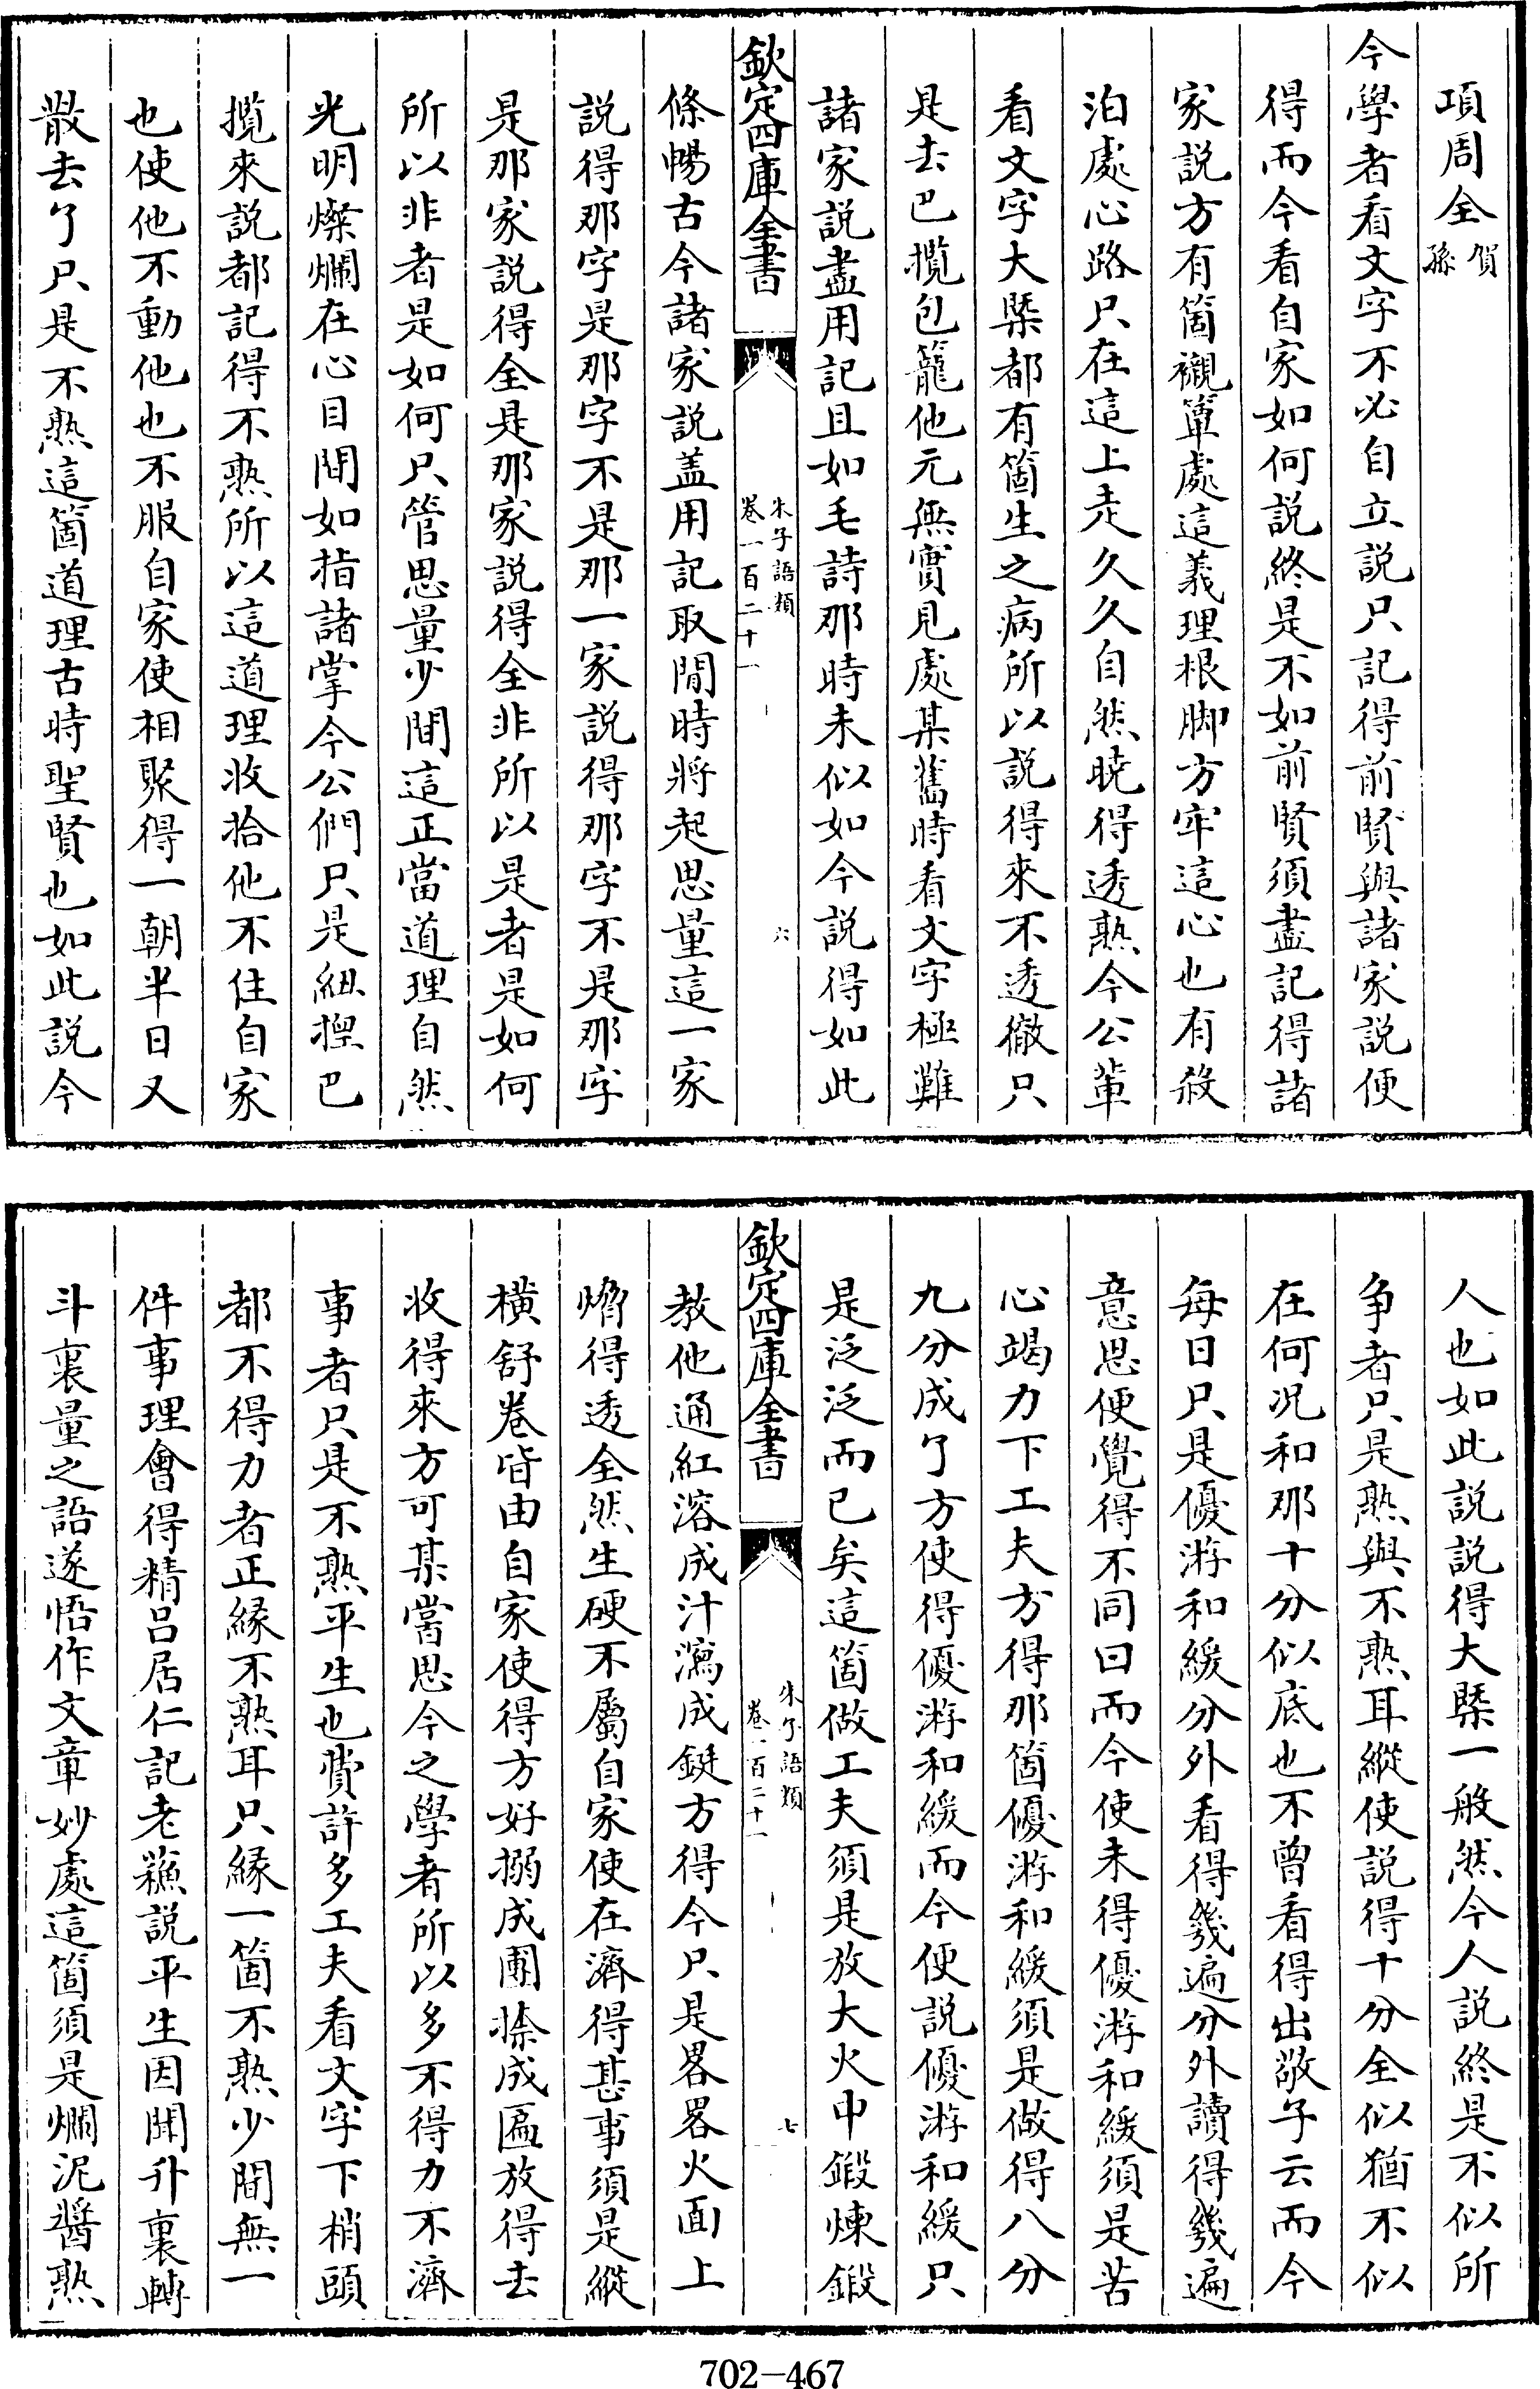 項周全賀孫
今學者看文字不必自立説只記得前賢與諸家説便
得而今看自家如何説終是不如前賢須盡記得諸
家説方有箇襯簟處這義理根脚方牢這心也有殺
泊處心路只在這上走久久自然曉得透熟今公輩
看文字大槩都有箇生之病所以説得來不透徹只
是去巴攬包籠他元無實見處某舊時看文字極難
諸家説盡用記且如毛詩那時未似如今説得如此
欽定四庫全書
朱子語類
卷一百二十一
六
條暢古今諸家説盖用記取閒時將起思量這一家
説得那字是那字不是那一家説得那字不是那字
是那家説得全是那家説得全非所以是者是如何
所以非者是如何只管思量少間這正當道理自然
光明燦爛在心目間如指諸掌今公們只是紐揑巴
攬來説都記得不熟所以這道理收拾他不住自家
也使他不動他也不服自家使相聚得一朝半日又
散去了只是不熟這箇道理古時聖賢也如此説今
人也如此説説得大槩一般然今人説終是不似所
争者只是熟與不熟耳縱使説得十分全似猶不似
在何况和那十分似底也不曾看得出敬子云而今
每日只是優游和緩分外看得幾遍分外讀得幾遍
意思便覺得不同曰而今使未得優游和緩須是苦
心竭力下工夫方得那箇優游和緩須是做得八分
九分成了方使得優游和緩而今便説優游和緩只
是泛泛而已矣這箇做工夫須是放大火中鍜煉鍜
欽定四庫全書
朱子語類
卷一百二十一
七
教他通紅溶成汁瀉成鋌方得今只是畧畧火面上
熁得透全然生硬不屬自家使在濟得甚事須是縱
橫舒卷皆由自家使得方好搦成團捺成匾放得去
收得來方可某嘗思今之學者所以多不得力不濟
事者只是不熟平生也費許多工夫看文字下梢頭
都不得力者正緣不熟耳只緣一箇不熟少間無一
件事理會得精吕居仁記老蘇説平生因聞升裏轉
斗裏量之語遂悟作文章妙處這箇須是爛泥醬熟
702-467